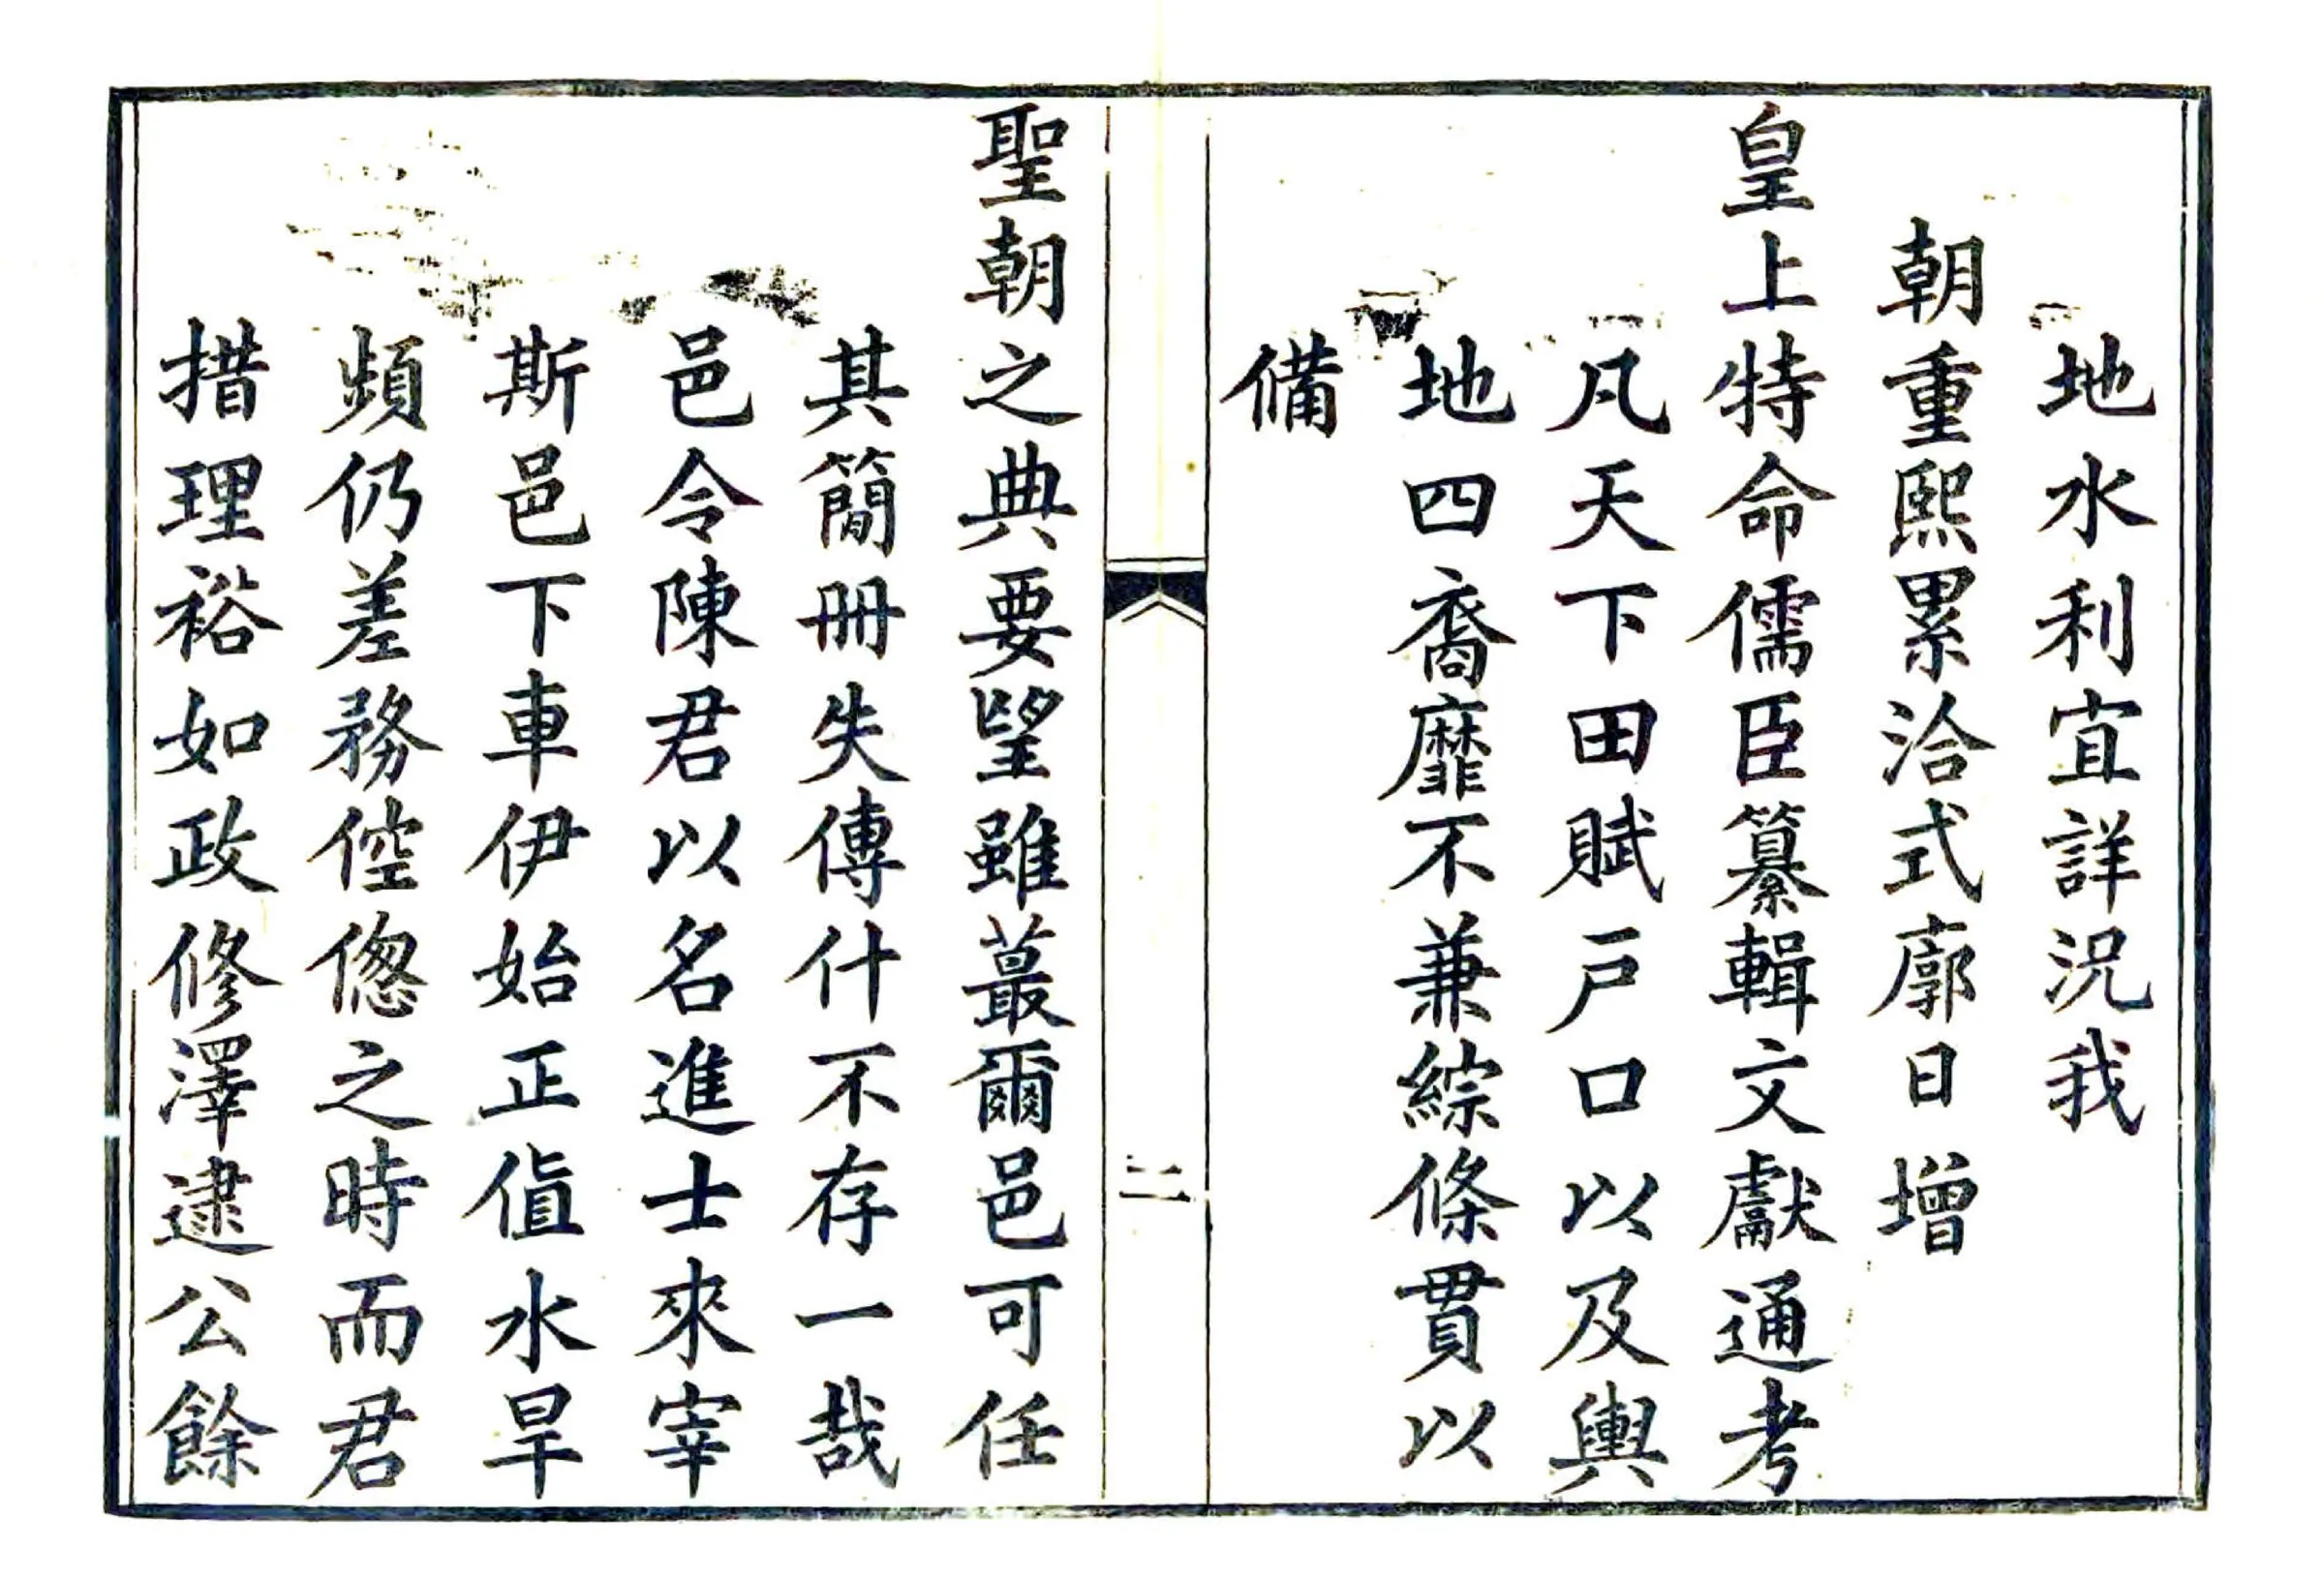 地水利宜詳況我
朝重熙累洽式廓日增
皇上特命儒臣纂輯文獻通考
凡天下田賦戶口以及輿
地四裔靡不兼綜條貫以
備
二
聖朝之典要朢雖蕞爾邑可任
其簡冊失傳什不存一哉
邑令陳君以名進士來宰
斯邑下車伊始正值水旱
頻仍差務倥偬之時而君
措理裕如政修澤逮公餘